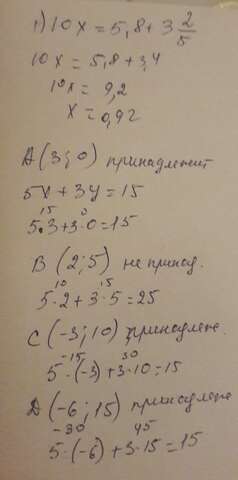 1) 10x = 5,8 + 3 2/5
10x = 5,8 + 3,4
10x = 9,2
x = 0,92
A (3; 0) принадлежит
5x + 3y = 15
15 0
5·3 + 3·0 = 15
B (2; 5) не принад.
10 15
5·2 + 3·5 = 25
C (-3; 10) принадлеж.
-15 30
5·(-3) + 3·10 = 15
D (-6; 15) принадлеж
-30 45
5·(-6) + 3·15 = 15